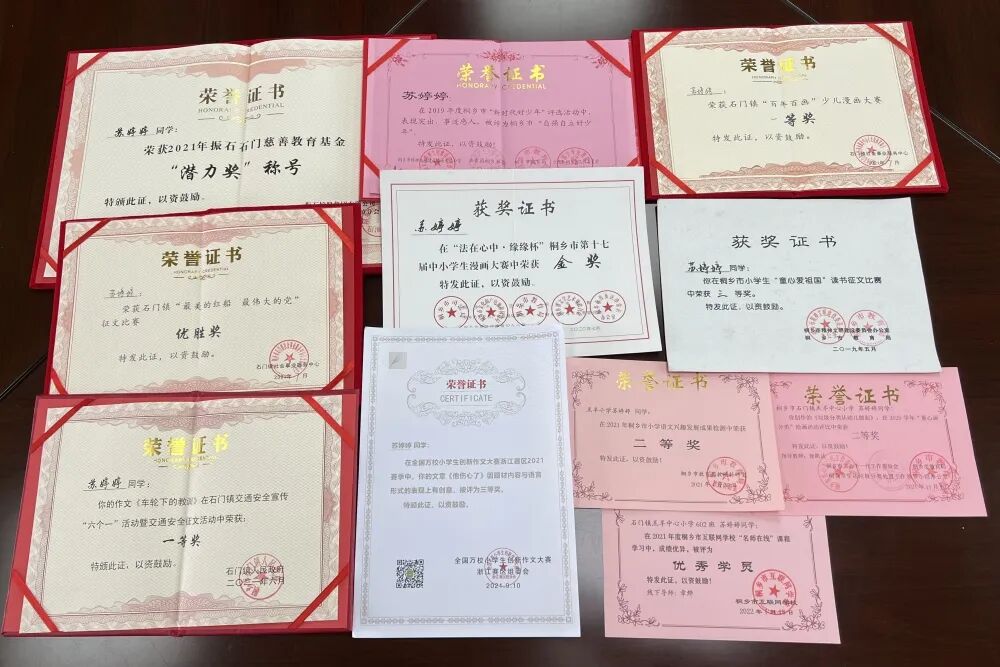 荣誉证书
HONORARY CREDENTIAL
苏婷婷 同学：
荣获2021年振石石门慈善教育基金
“潜力奖”称号
特颁此证，以资鼓励。
荣誉证书
HONORARY CREDENTIAL
苏婷婷：
在2019年度桐乡市“新时代好少年”评选活动中
表现突出、事迹感人，被评为桐乡市“自强自立好少
年”。
荣誉证书
HONORARY CREDENTIAL
苏婷婷：
荣获石门镇“百年百画”少儿漫画大赛
一等奖
特发此证，以资鼓励。
石门镇社会事业服务中心
荣誉证书
HONORARY CREDENTIAL
苏婷婷：
荣获石门镇“最美的红船 最伟大的党”
征文比赛
优胜奖
特发此证，以资鼓励。
石门镇社会事业服务中心
获奖证书
苏婷婷
在“法在心中·缘缘杯”桐乡市第十七
届中小学生漫画大赛中荣获 金奖
特发此证，以资鼓励。
获奖证书
苏婷婷 同学：
你在桐乡市小学生“童心爱祖国”读书征文比赛
中荣获 三 等奖。
特发此证，以资鼓励。
桐乡市教育局
二〇一九年五月
荣誉证书
HONORARY CREDENTIAL
苏婷婷 同学：
你的作文《车轮下的教训》在石门镇交通安全宣传
“六个一”活动暨交通安全征文活动中荣获：
一等奖
特颁此证，以资鼓励。
石门镇人民政府
荣誉证书
CERTIFICATE
苏婷婷 同学：
在全国万校小学生创新作文大赛浙江赛区2021
赛季中，你的文章《他伤心了》因题材内容与语言
形式的表现上有创意，被评为三等奖。
特颁此证，以资鼓励。
全国万校小学生创新作文大赛
浙江赛区组委会
2024.9.10
荣誉证书
羔羊小学苏婷婷 同学，
在2021年桐乡市小学语文兴趣发展成果检测中荣获
二等奖
特发此证，以资鼓励！
荣誉证书
桐乡市石门镇羔羊中心小学 苏婷婷同学：
二等奖
石门镇羔羊中心小学602班 苏婷婷同学：
在2021年度桐乡市互联网学校“名师在线”课程
学习中，成绩优异，被评为
优秀学员
特发此证，以资鼓励！
桐乡市互联网学校